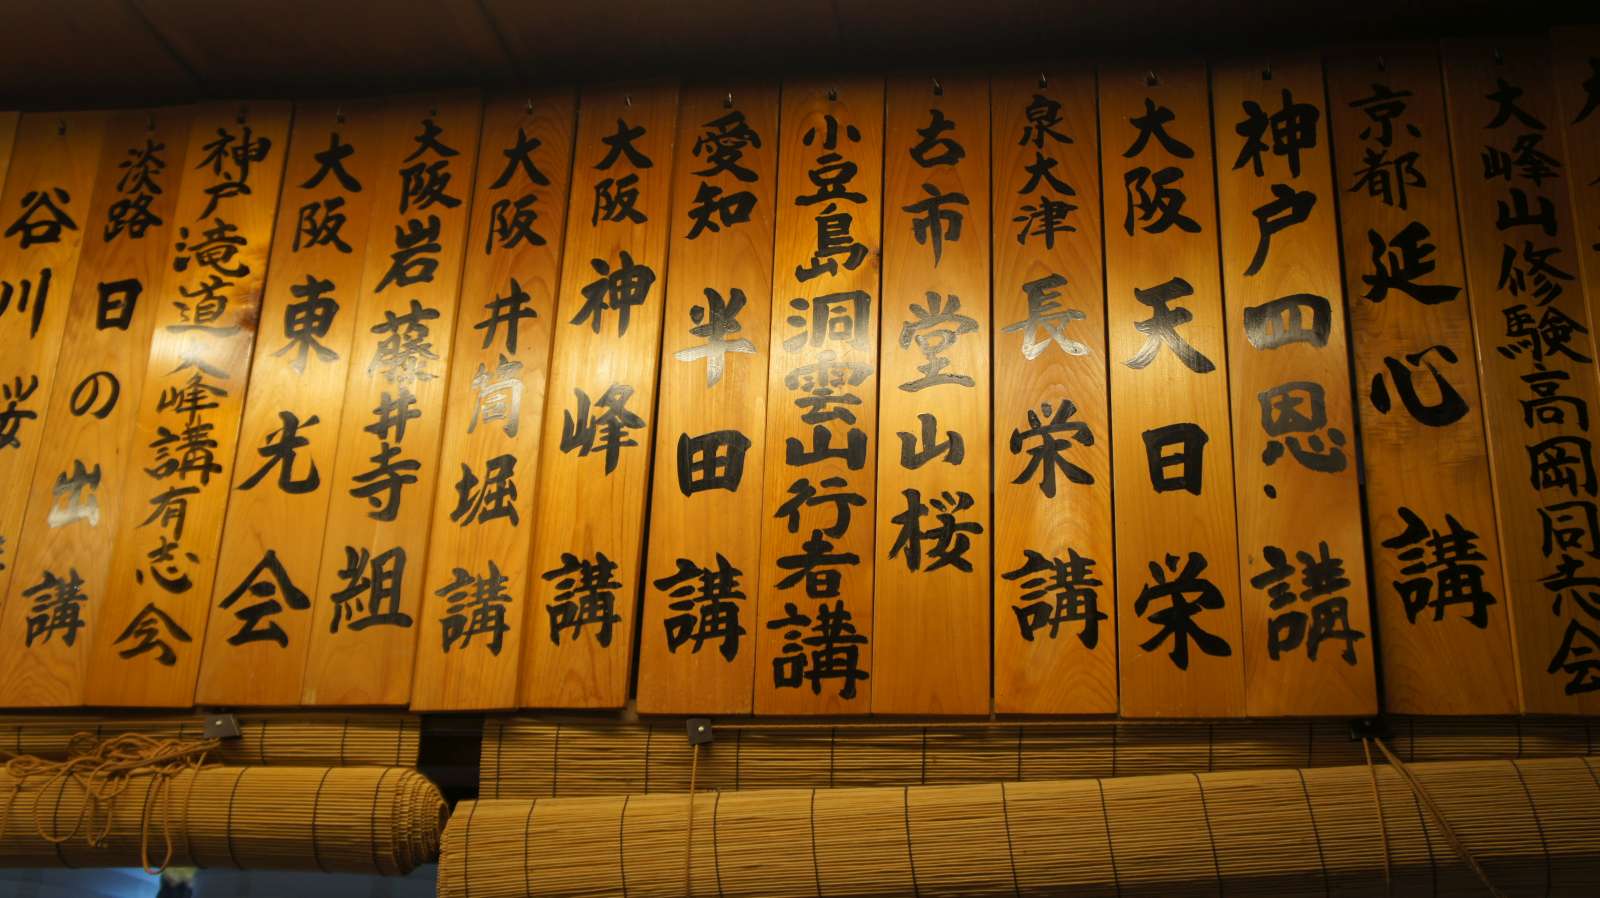 大峰山修験高岡同志会
京都延心講
神戸四恩講
大阪天日栄
泉大津長栄講
古市堂山桜
小豆島洞雲山行者講
愛知半田講
大阪神峰講
大阪井筒堀講
大阪岩藤井寺組
大阪東光会
神戸滝道大峰講有志会
淡路日の出講
谷川桜